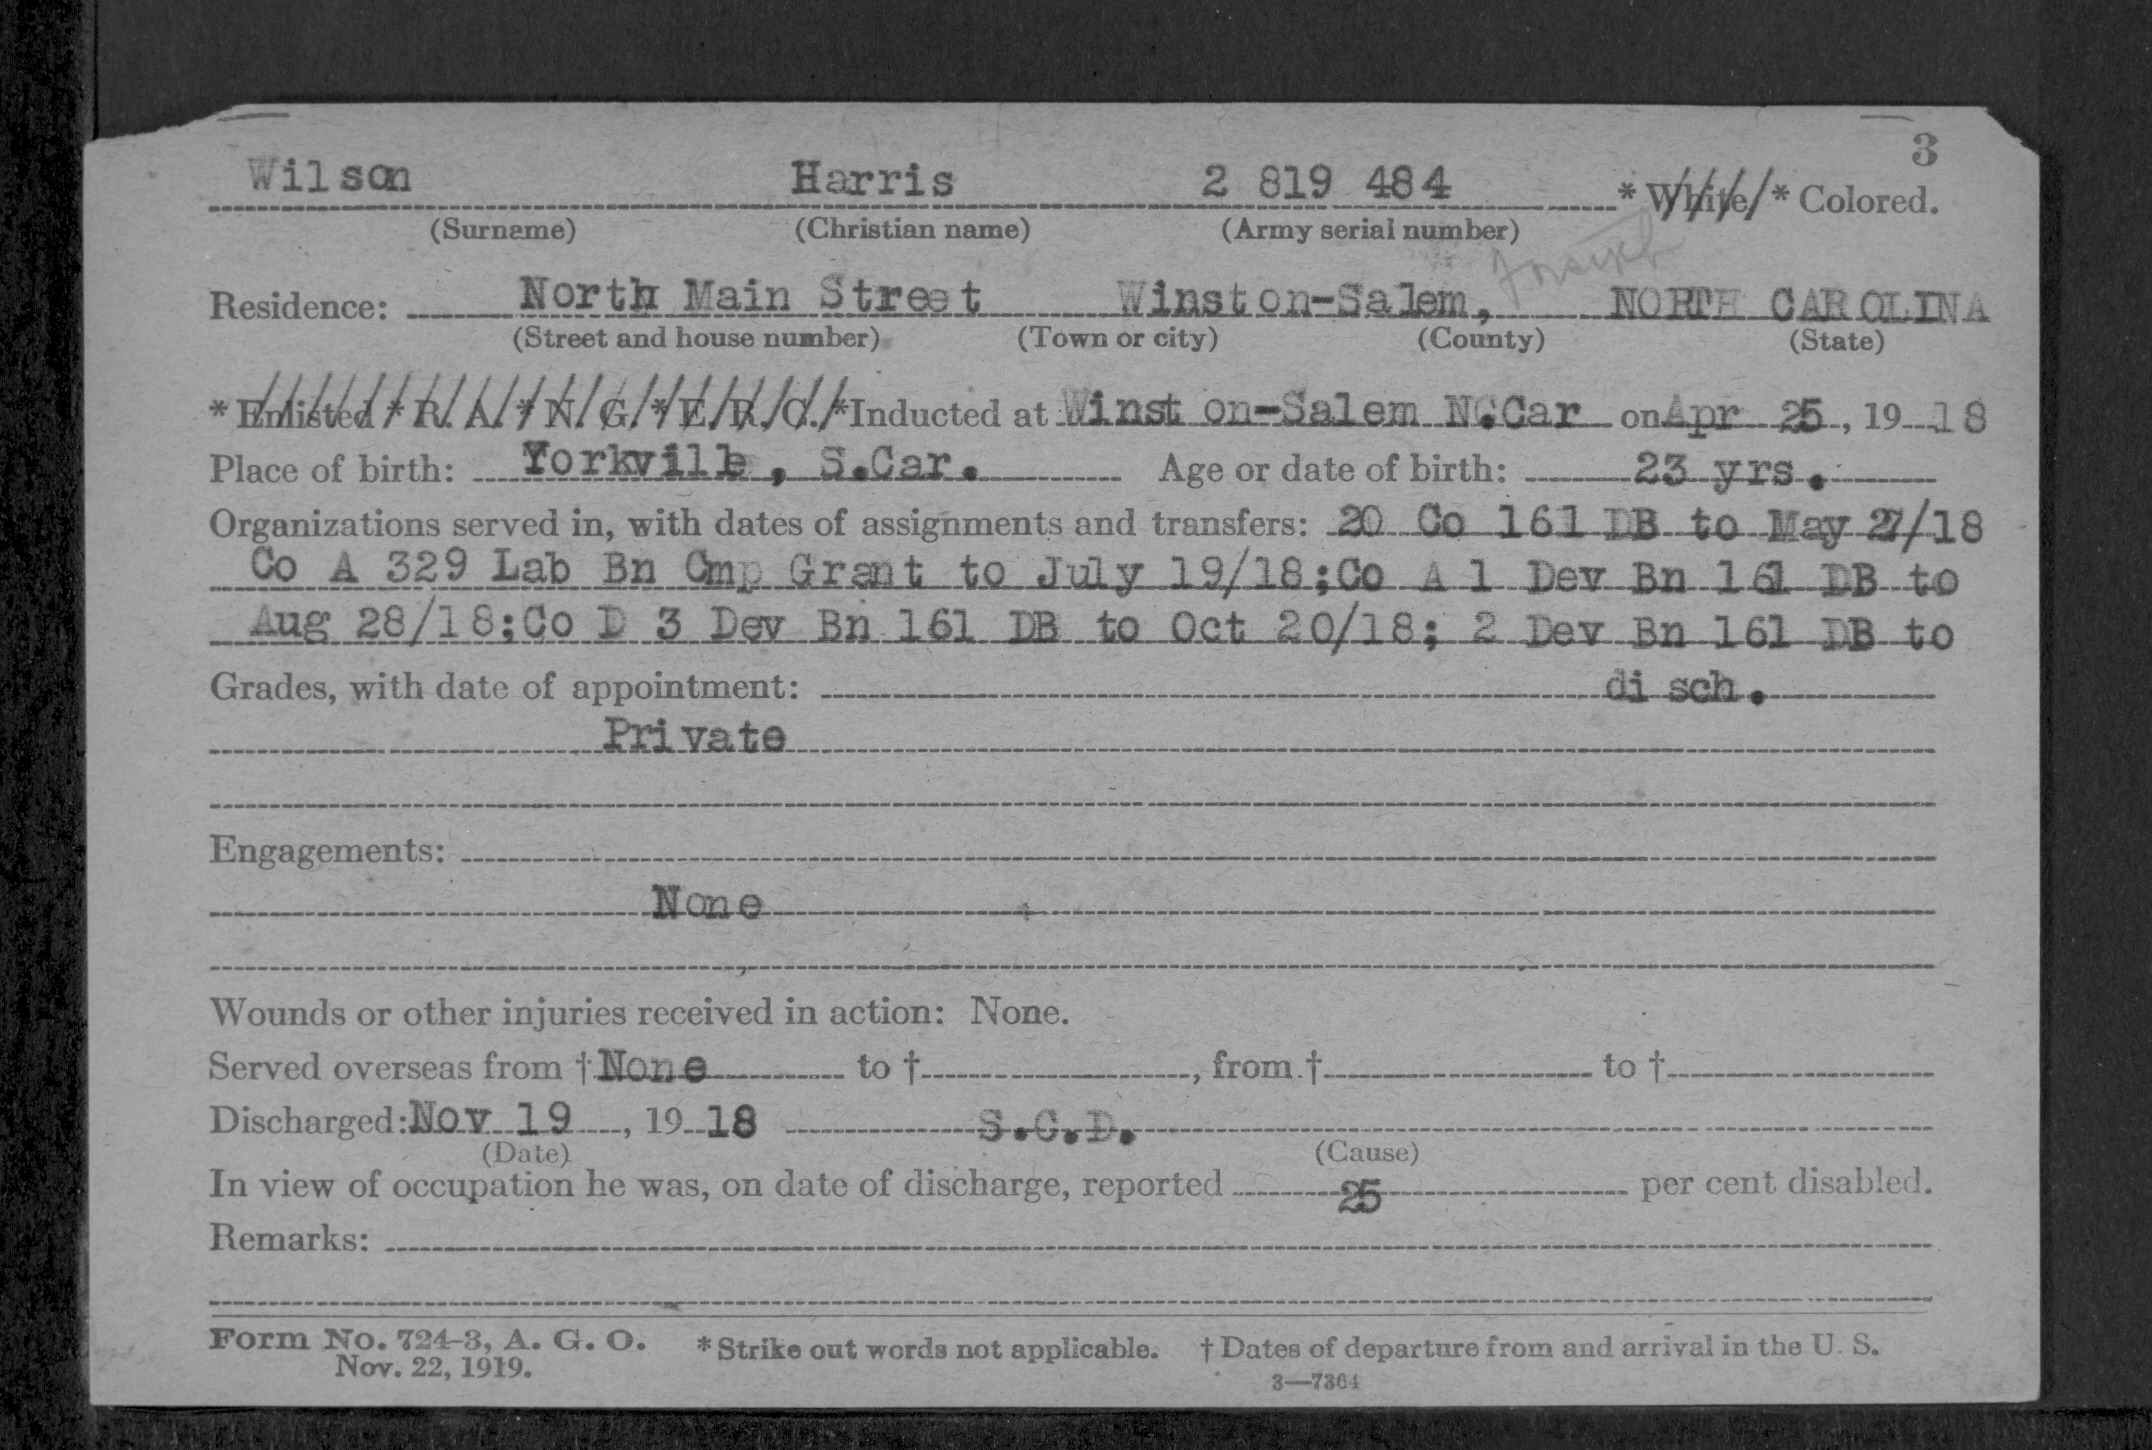 3
Wilson Harris 2 819 484 * White * Colored.
(Surname) (Christian name) (Army serial number)
Residence: North Main Street Winston-Salem, NORTH CAROLINA
(Street and house number) (Town or city) (County) (State)
* Enlisted * R. A. * N. G. * E. R. C. * Inducted at Winston-Salem N.Car on Apr 25, 19 18
Place of birth: Yorkville, S.Car. Age or date of birth: 23 yrs.
Organizations served in, with dates of assignments and transfers: 20 Co 161 DB to May 27/18
Co A 329 Lab Bn Cmp Grant to July 19/18; Co A 1 Dev Bn 161 DB to
Aug 28/18; Co D 3 Dev Bn 161 DB to Oct 20/18; 2 Dev Bn 161 DB to
Grades, with date of appointment: disch.
Private
Engagements:
None
Wounds or other injuries received in action: None.
Served overseas from † None to †, from † to †
Discharged: Nov 19, 19 18 S.C.D.
(Date) (Cause)
In view of occupation he was, on date of discharge, reported 25 per cent disabled.
Remarks:
Form No. 724-3, A. G. O. * Strike out words not applicable. † Dates of departure from and arrival in the U. S.
Nov. 22, 1919. 3—7364